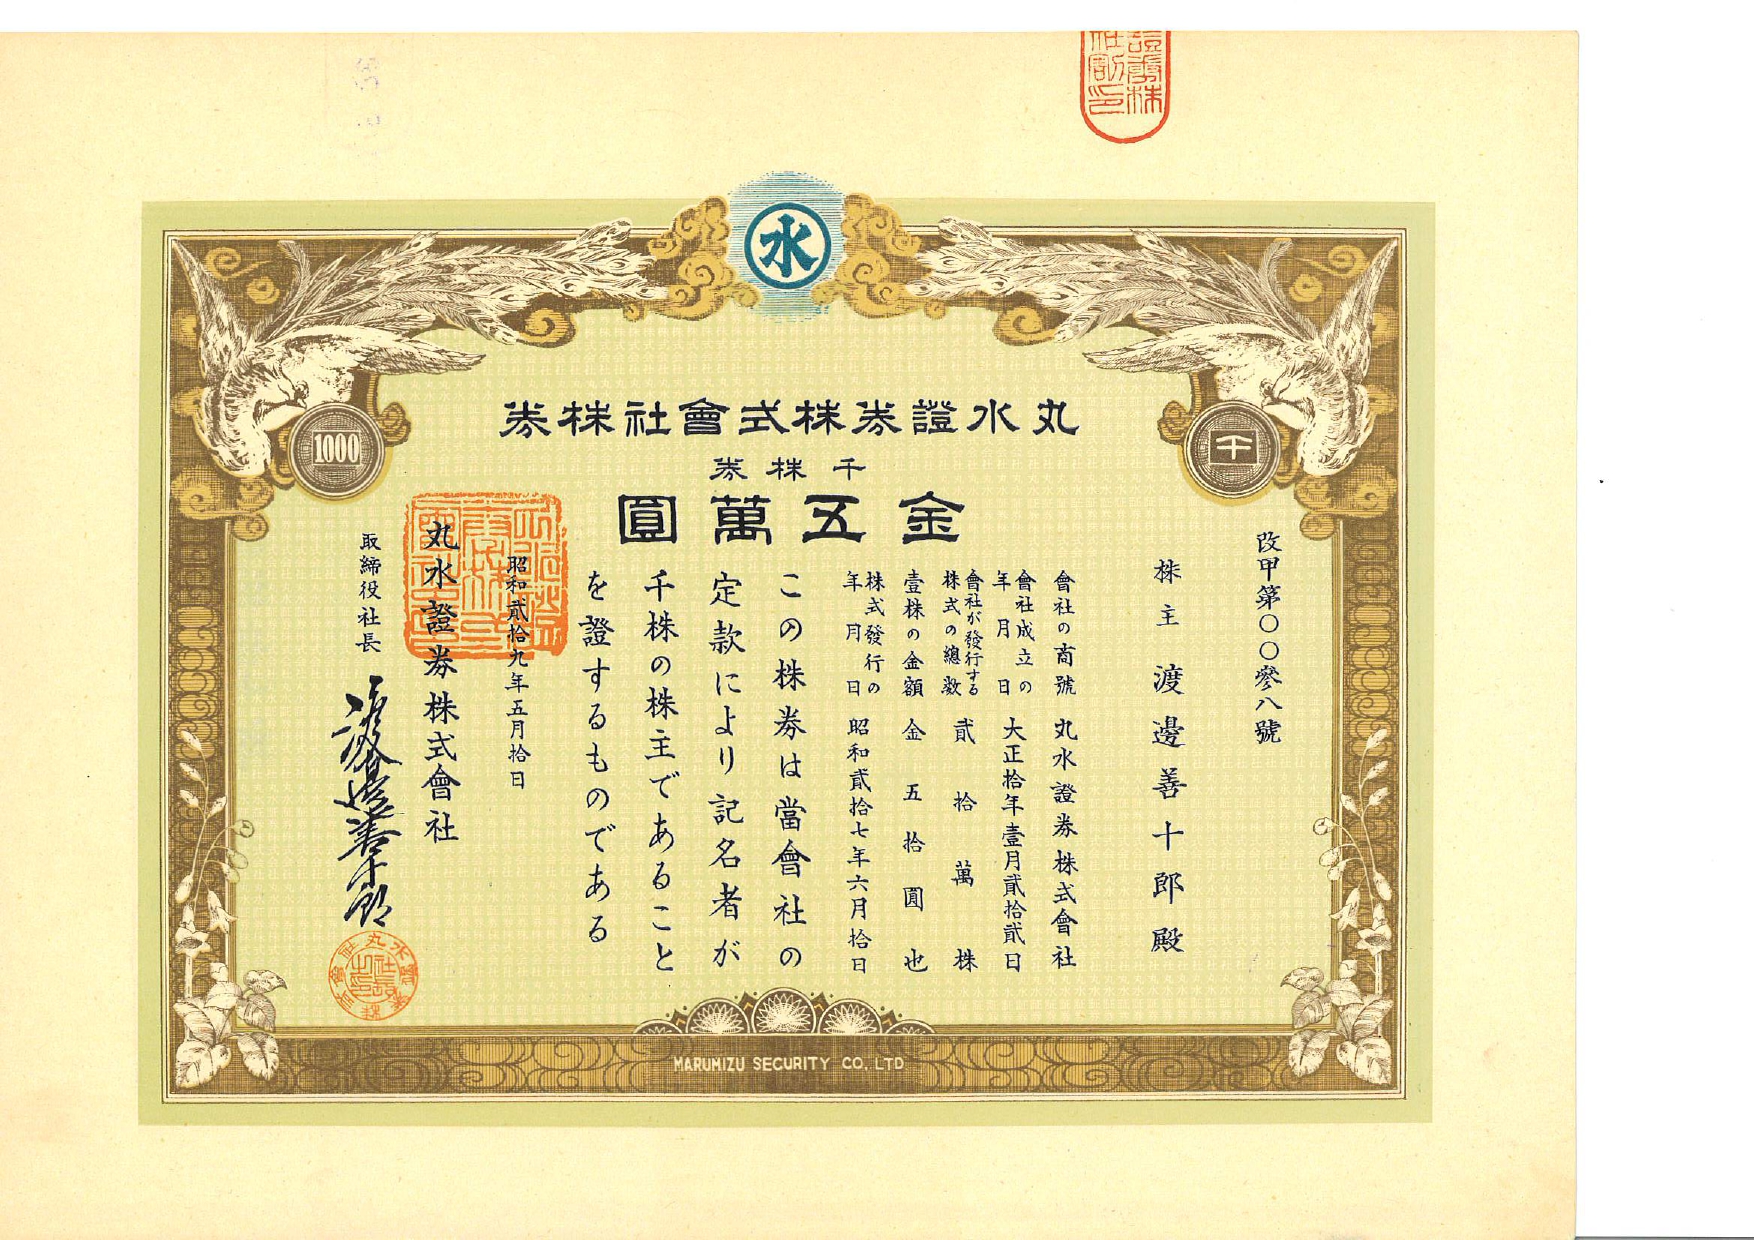 水
丸水證券株式會社株券
千株券
金五萬圓
1000
千
改甲第〇〇參八號
株主 渡邊善十郎殿
會社の商號 丸水證券株式會社
會社成立の年月日 大正拾年壹月貳拾貳日
會社が發行する株式の總数 貳拾萬株
壹株の金額 金五拾圓也
株式發行の年月日 昭和貳拾七年六月拾日
この株券は當會社の
定款により記名者が
千株の株主であること
を證するものである
昭和貳拾九年五月拾日
丸水證券株式會社
取締役社長 渡邊善十郎
MARUMIZU SECURITY CO. LTD